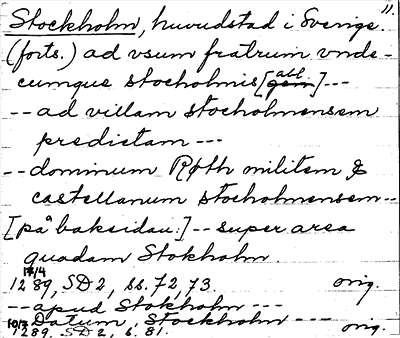 11.
Stockholm, huvudstad i Sverige.
(forts.) ad vsum fratrum vnde-
cumque stocholmis [gen abl.] ---
-- ad villam stocholmensem
predictam ---
-- dominum Røth militem &
castellanum stocholmensem --
[på baksidan:] -- super area
quadam Stokholm.
17/4
1289, SD 2, ss. 72, 73. orig.
-- apud Stokholm ---
-- Datum, Stockholm ---
10/8
1289. SD 2, s. 81. orig.